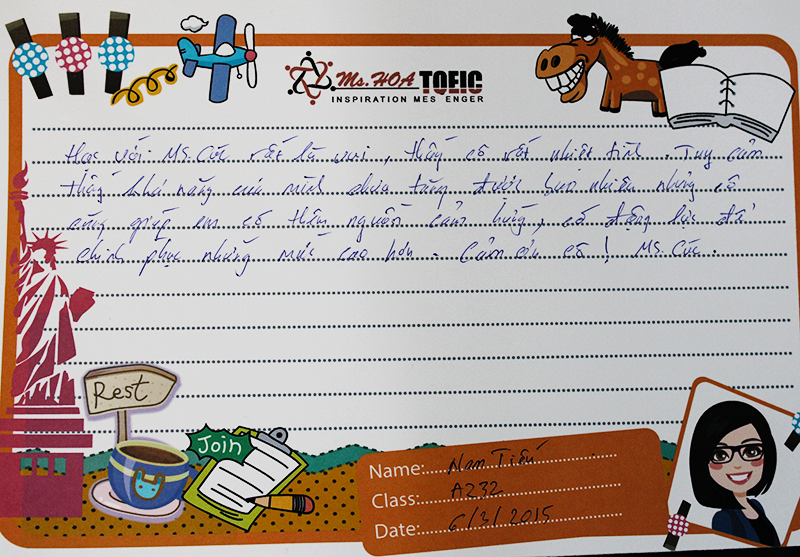 Ms. HOA TOEIC
INSPIRATION MES ENGER
Học với Ms. Cúc rất là vui, thấy cô rất nhiệt tình. Tuy cảm
thấy khả năng của mình chưa tăng được bao nhiêu nhưng cô
cũng giúp em có thêm nguồn cảm hứng, có động lực để
chinh phục những mức cao hơn. Cảm ơn cô! Ms. Cúc.
Rest
Join
Name: Nam Tiến
Class: A232
Date: 6/3/2015